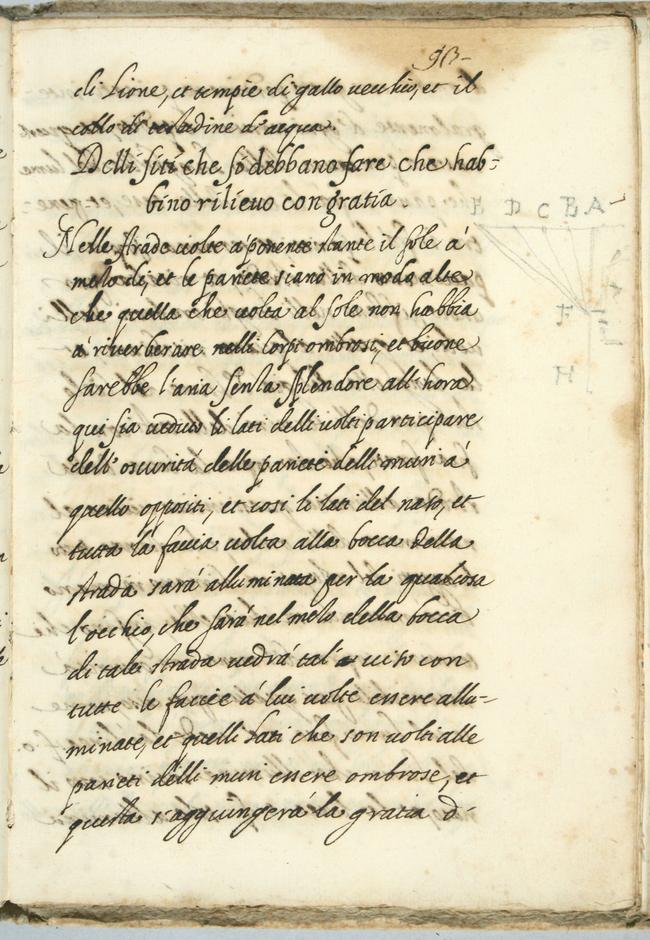 93-
di Lione, et tempie di gallo vecchio, et il
collo di testudine d'acqua.
Delli siti che si debbano fare che hab=
bino rilievo con gratia.
Nelle strade volte à ponente stante il sole à
mezo dì, et le pariete siano in modo alte
che quella che volta al sole non habbia
à riverberare nelli corpi ombrosi, et buone
sarebbe l'aria senza splendore all'hora
qui sia veduto li lati delli volti participare
dell'oscurità delle pariete delli muri à
quello oppositi, et cosi li lati del naso, et
tutta la faccia volta alla bocca della
strada sarà alluminata per la qual cosa
l'occhio, che sarà nel mezo della bocca
di tale strada vedrà tal viso con
tutte le faccie à lui volte essere allu=
minate, et quelli lati che son volti alle
parieti delli muri essere ombrose, et
questa s'aggiungerà la gratia d'
E D C B A
F
H